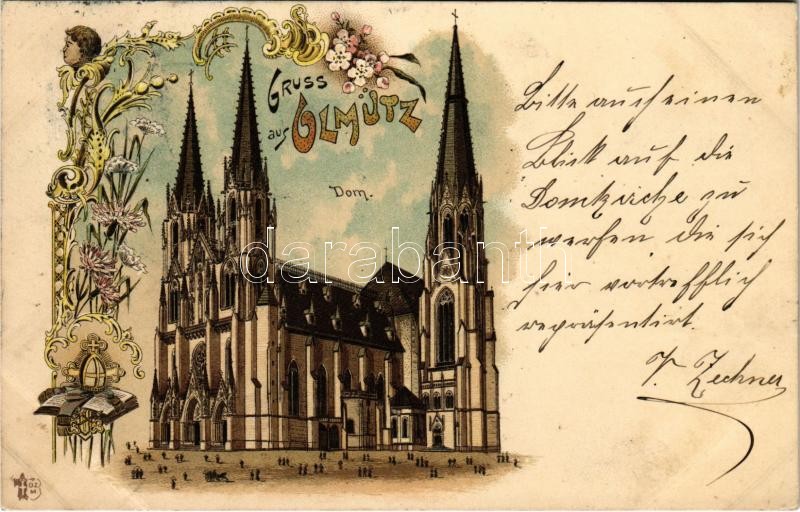 GRUSS
aus OLMÜTZ
Dom.
darabanth
Bitte auch einen
Blick auf die
Domkirche zu
werfen die sich
hier vortrefflich
repräsentirt.
Zechner